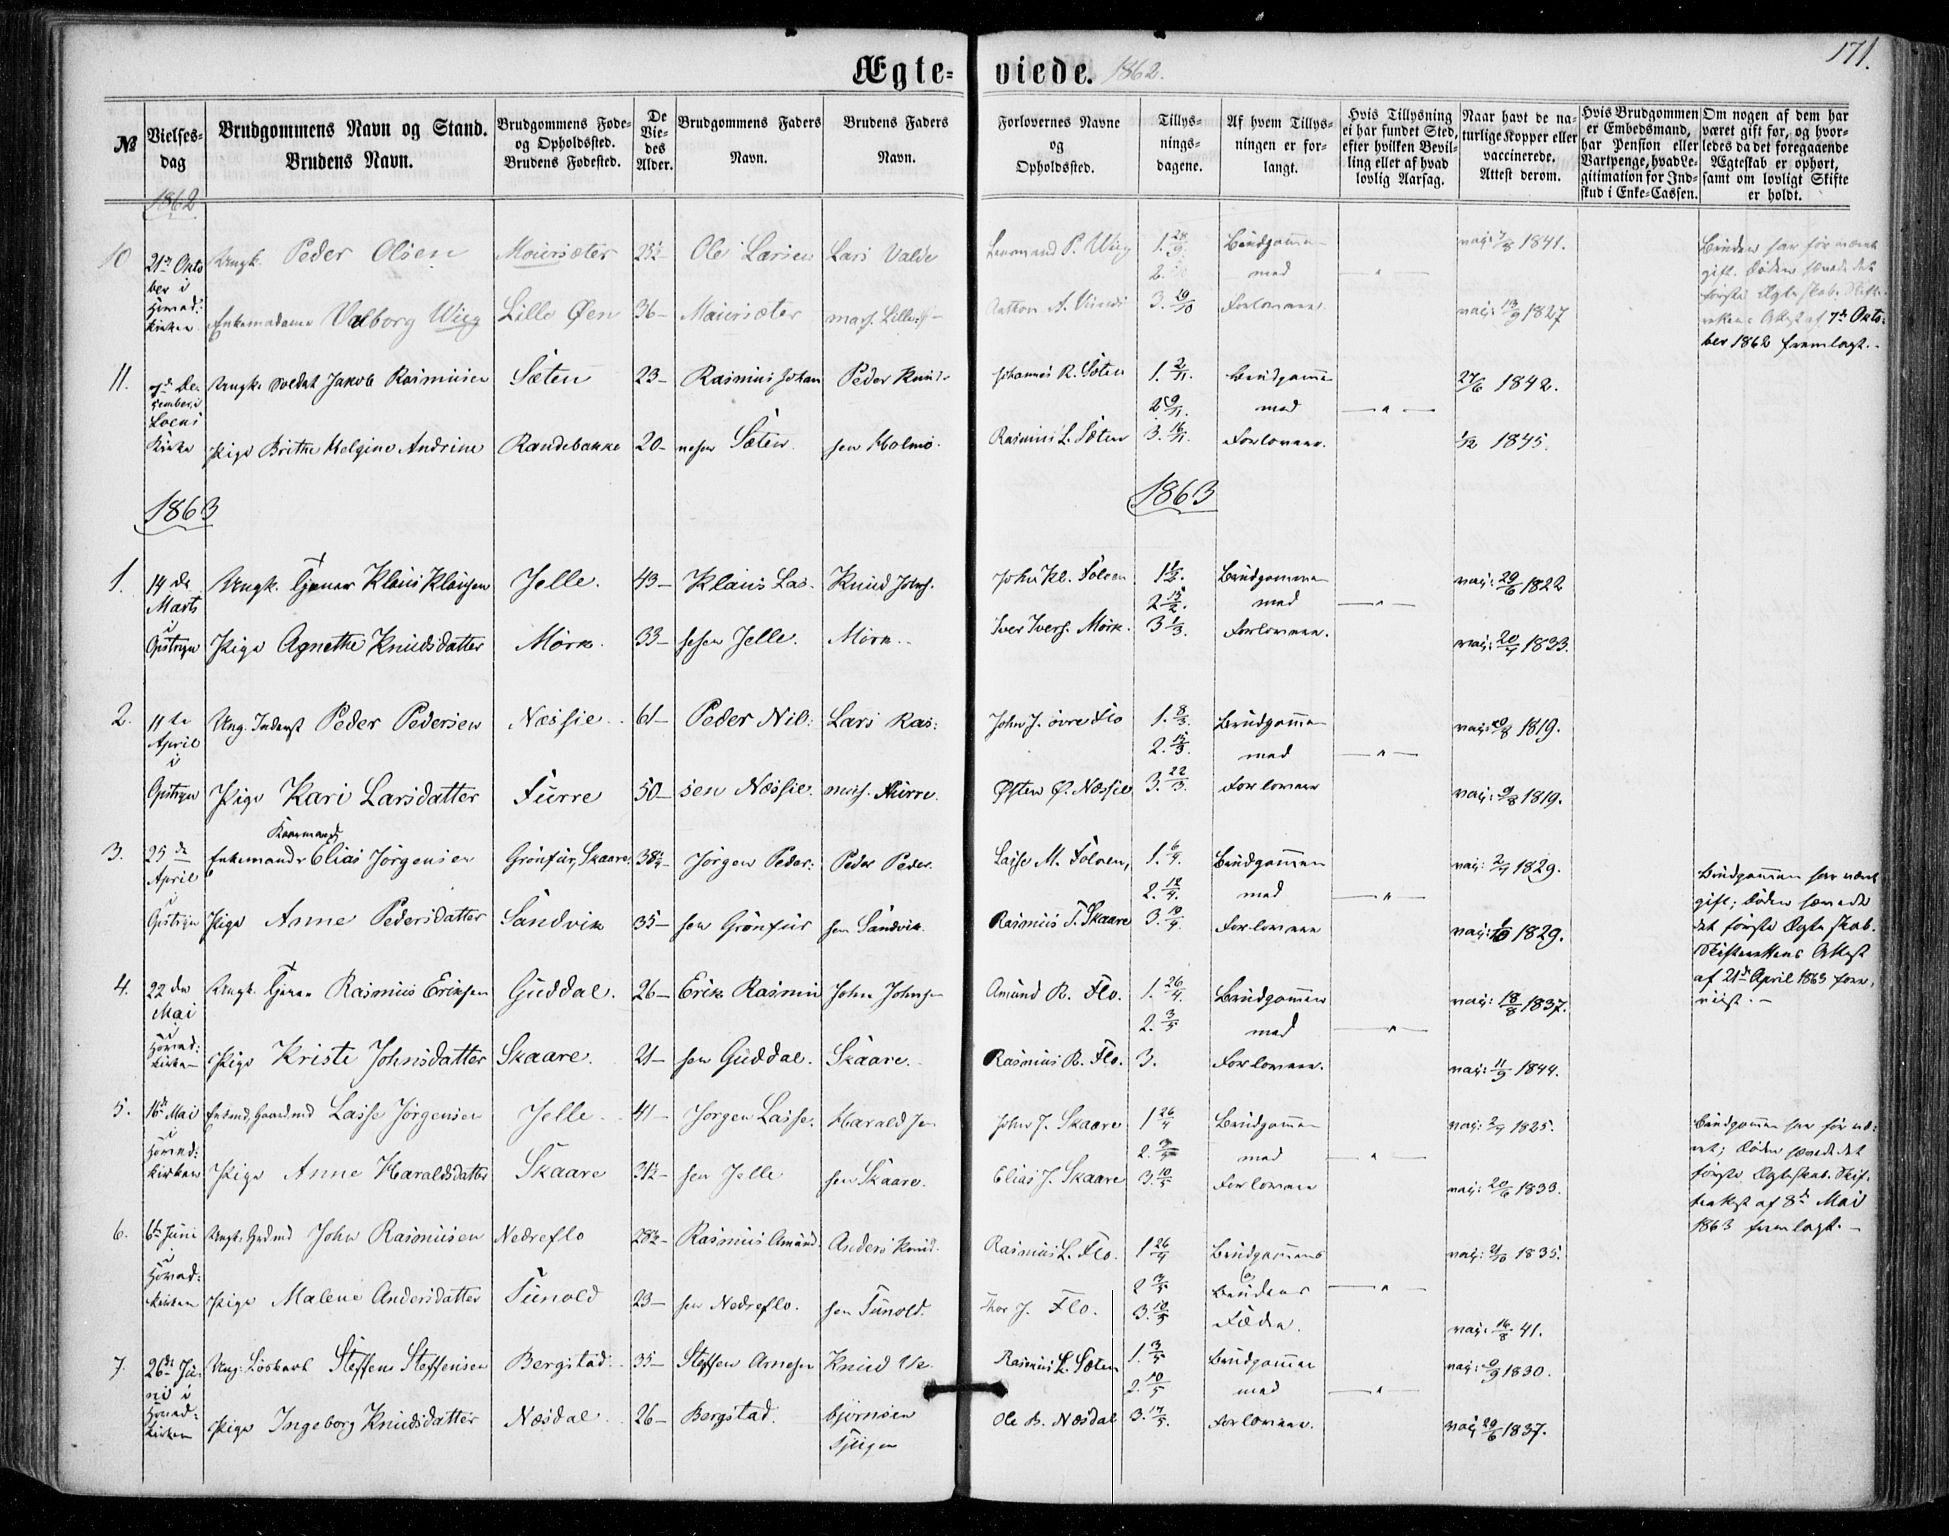 171.
Ægteviede. 1862.
№ | Vielsesdag | Brudgommens Navn og Stand. Brudens Navn. | Brudgommens Føde- og Opholdssted. Brudens Fødested. | De Viedes Alder. | Brudgommens Faders Navn. | Brudens Faders Navn. | Forlovernes Navne og Opholdssted. | Tillysningsdagene. | Af hvem Tillysningen er forlangt. | Hvis Tillysning ei har fundet Sted, efter hvilken Bevilling eller af hvad lovlig Aarsag. | Naar havt de naturlige Kopper eller vaccinerede. Attest derom. | Hvis Brudgommen er Embedsmand, har Pension eller Vartpenge, hvad Legitimation for Indskud i Enke-Cassen. | Om nogen af dem har været gift før, og hvorledes da det foregaaende Ægteskab er ophørt, samt om lovligt Skifte er holdt.
1862
10 | 21de Oktober i Hoved: kirken | Ungk. Peder Olsen | Mourisæter | 25½ | Ole Larsen | Lars Valde | Lensmand P. Wiig | 1. 28/9 | Brudgommen | vac: 7/8 1841. | Bruden har før været
2. | med | gift. Døden hævede det
Enkemadame Valborg Wiig | Lille Øen | 36 | Mourisæter | | 3. 19/10 | Forlovere | vac: 13/9 1827 | første Ægteskab. Skifterettens Attest af 7de Oktober 1862 fremlagt.
11. | 7de December i Loens Kirke | Ungk. Soldat Jakob Rasmusen | Sæten | 23 | Rasmus Johan | Peder Knud- | Johannes R. Sæten | 1. 2/11. | Brudgommen | 27/6 1842.
2 9/11. | med
Pige Brithe Helgine Andrine | Randebakke | 20 | nesen Sæten. | sen Holmø. | Rasmus L. Sæten | 3. 16/11. | Forlovere. | 1845.
1863 | 1863
1. | 14de Marts i Opstryn | Ungk. Tjener Klaus Klausen | Jelle. | 43 | Klaus Las- | Knud Johs. | John Kl. Folven | 1 | Brudgommen | vac: 29/6 1822
2 15/2. | med
Pige Agnethe Knudsdatter | Mørk. | 33 | sesen Jelle. | Mørk. | Iver Ivers. Mørk. | 3 1/3. | Forlovere. | vac: 1833.
2. | 11te April i Opstryn | Ung. Inderst Peder Pedersen | Næssie | 61 | Peder Nil: | Lars Ras: | John J. øvre Flo | 1. 8/3. | Brudgommen | vac: 1819.
2. 15/3. | med
Pige Kari Larsdatter | Furre | 50 | sen Næssie. | mus. Furre. | Østen Ø. Næssie | 3. 22/3. | Forlovere | vac: 9/8 1819.
3. | 25de April i Opstryn | Enkemand Elias Jørgensen | Grønfur, Skaare | 38½ | Jørgen Peder: | Peder Peder. | Lasse M. Folven, | 1. 6/4. | Brudgommen | vac: 1829. | Brudgommen har været
2. 12/4. | med | gift; Døden hævede
Pige Anne Pedersdatter | Sandvik | 35 | sen Grønfur | sen Sandvik. | Rasmus T. Skaare | 3. 19/4. | Forlovere | vac: 1829. | det første Ægteskab. Skifterettens Attest af 21de April 1863 forevist.
4. | 22de Mai i Hoved: kirken | Ungk. Tjener Rasmus Eriksen | Guddal. | 26 | Erik Rasmu | John Johnsen | Amund R. Flo. | 1. 26/4. | Brudgommen | vac: 18/8 1837.
2. 3/5 | med
Pige Kristi Johnsdatter | Skaare. | 21 | sen Guddal. | Skaare. | Rasmus R. Flo. | 3. | Forlovere. | vac: 11/9 1844.
5. | 16de Mai i Hoved: kirken | Enkemd, Gaardmd Lasse Jørgensen | Jelle | 41 | Jørgen Lasse. | Harald Jo- | John J. Skaare | 1 26/4 | Brudgommen | vac: 1825. | Brudgommen har før været; Døden hævede det
2. 3/5 | med
Pige Anne Haraldsdatter | Skaare | 31½ | sen Jelle | sen Skaare. | Elias J. Skaare | 3. 10/5 | Forlovere | vac: 20/6 1833. | første Ægteskab. Skifteattest af 8de Mai 1863 fremlagt.
6. | 6te Juni i Hoved: kirken | Ungk. Grdmd John Rasmusen | Nedreflo | 28½ | Rasmus Amund. | Anders Knud. | Rasmus L. Flo. | 1 26/4 | Brudgommens | vac: 1835.
2 3/5 | Brudens
Pige Malene Andersdatter | Tunold | 23 | sen Nedreflo. | sen Tunold. | Thor J. Flo. | 3. 10/5 | Fædre. | vac: 16/8 41.
7. | 26de Juni i Hoved: kirken | Ung. Løskarl Steffen Steffensen | Bergstad. | 35 | Steffen Arnesen | Knud Ve- | Rasmus L. Sæten | 1. 3/5 | Brudgommen | vac: 1830.
2. 10/5 | med
Pige Ingeborg Knudsdatter | Næsdal. | 26 | Bergstad. | bjørnsen | Ole B. Næsdal | 3. 17/5. | Forlovere. | vac 29/6 1837.